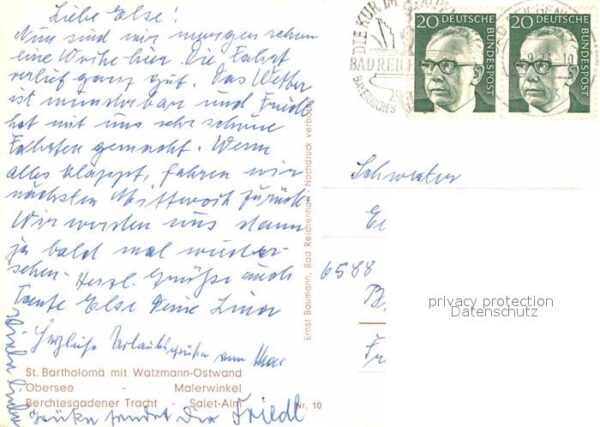 Liebe Else!
Nun sind wir morgen schon
eine Woche hier. Die Fahrt
verlief ganz gut. Das Wetter
ist wunderbar und Friedl
hat mit uns sehr schöne
Fahrten gemacht. Wenn
alles klappt, fahren wir
nächsten Mittwoch zurück.
Wir werden uns dann
ja bald mal wieder-
sehen. Herzl. Grüße auch
Tante Else Deine
Herzliche Urlaubsgrüße von
sendet der Friedl
St. Bartholomä mit Watzmann-Ostwand
Obersee - Malerwinkel
Berchtesgadener Tracht - Salet-Alm
Nr. 10
Ernst Baumann, Bad Reichenhall Nachdruck verboten
DIE KUR IM
BAD REICH
BAYERISCHES
20 DEUTSCHE BUNDESPOST
20 DEUTSCHE BUNDESPOST
Schwester
6588
privacy protection
Datenschutz